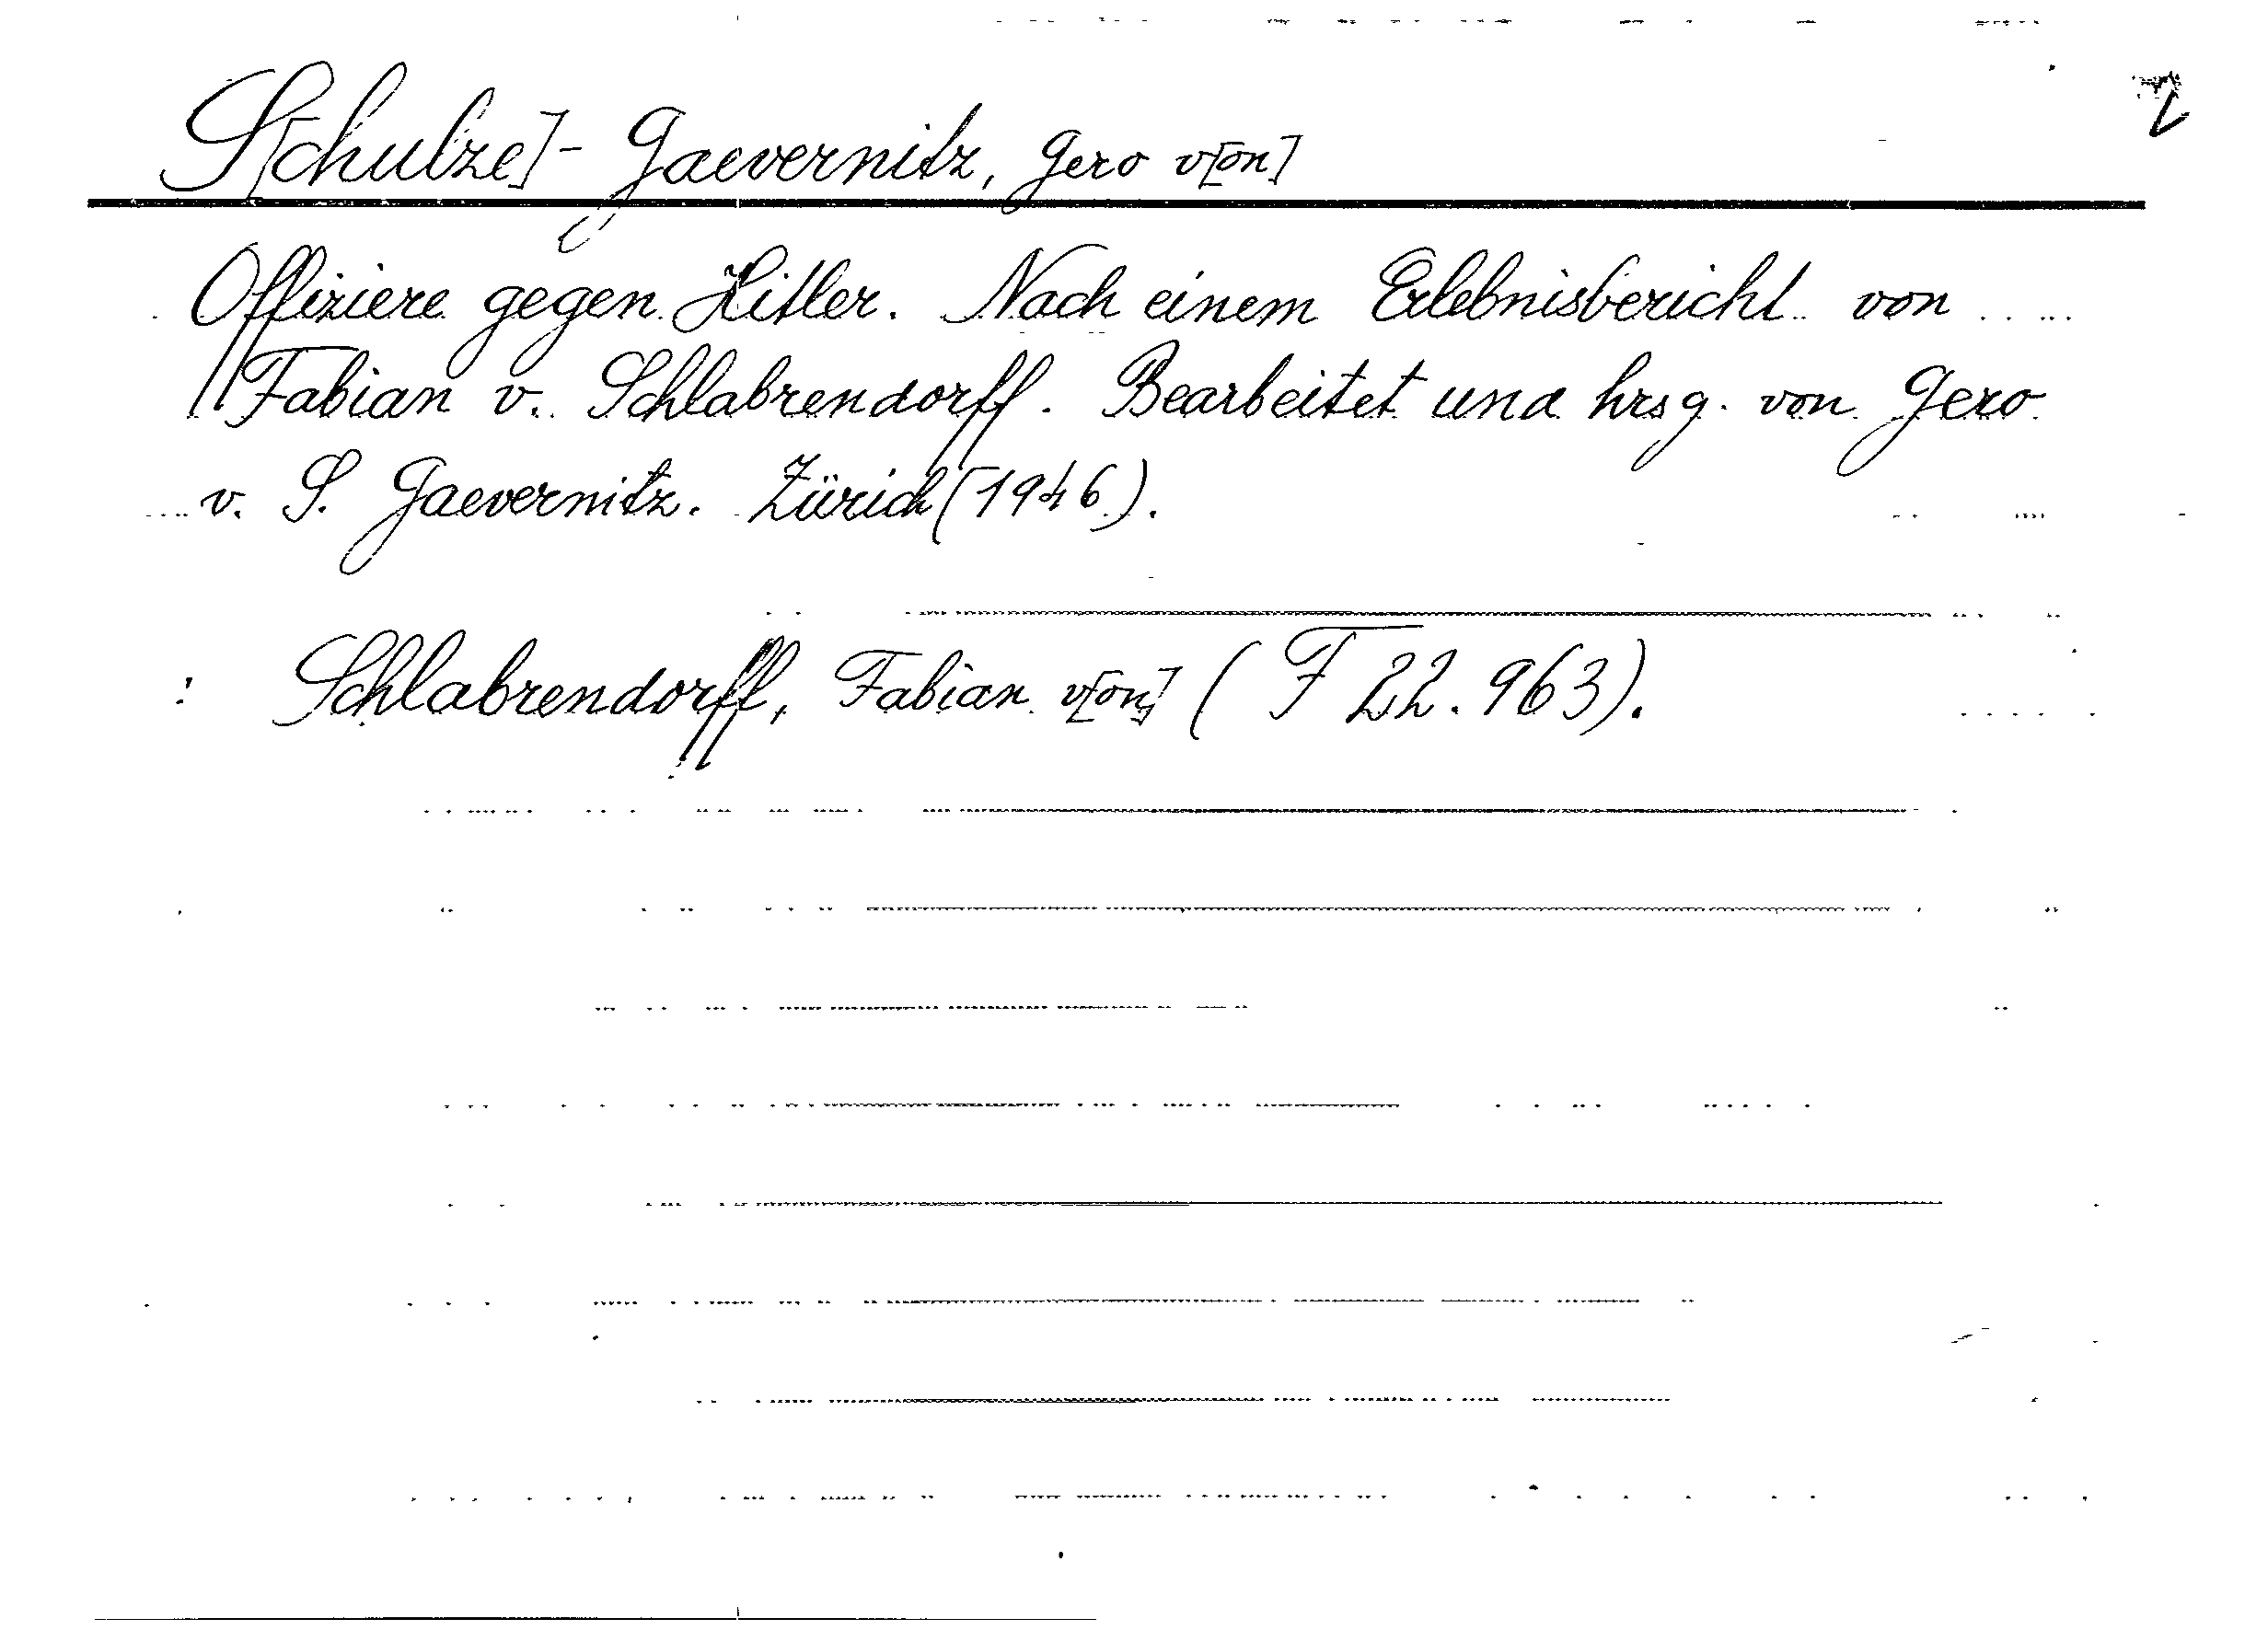 S[chulze]- Gaevernitz, Gero v[on]
Offiziere gegen Hitler. Nach einem Erlebnisbericht von
Fabian v. Schlabrendorff. Bearbeitet und hrsg. von Gero
v. S. Gaevernitz. Zürich (1946).
: Schlabrendorff, Fabian v[on] (F 22.963).